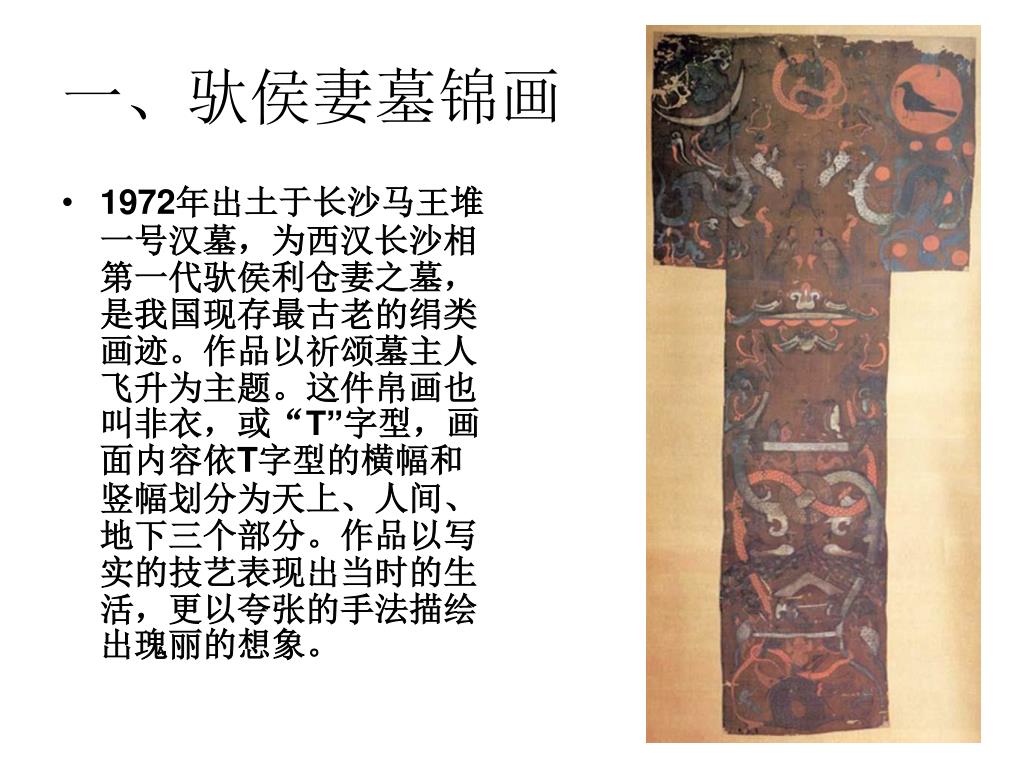 一、驮侯妻墓锦画
• 1972年出土于长沙马王堆
一号汉墓，为西汉长沙相
第一代驮侯利仓妻之墓，
是我国现存最古老的绢类
画迹。作品以祈颂墓主人
飞升为主题。这件帛画也
叫非衣，或“T”字型，画
面内容依T字型的横幅和
竖幅划分为天上、人间、
地下三个部分。作品以写
实的技艺表现出当时的生
活，更以夸张的手法描绘
出瑰丽的想象。